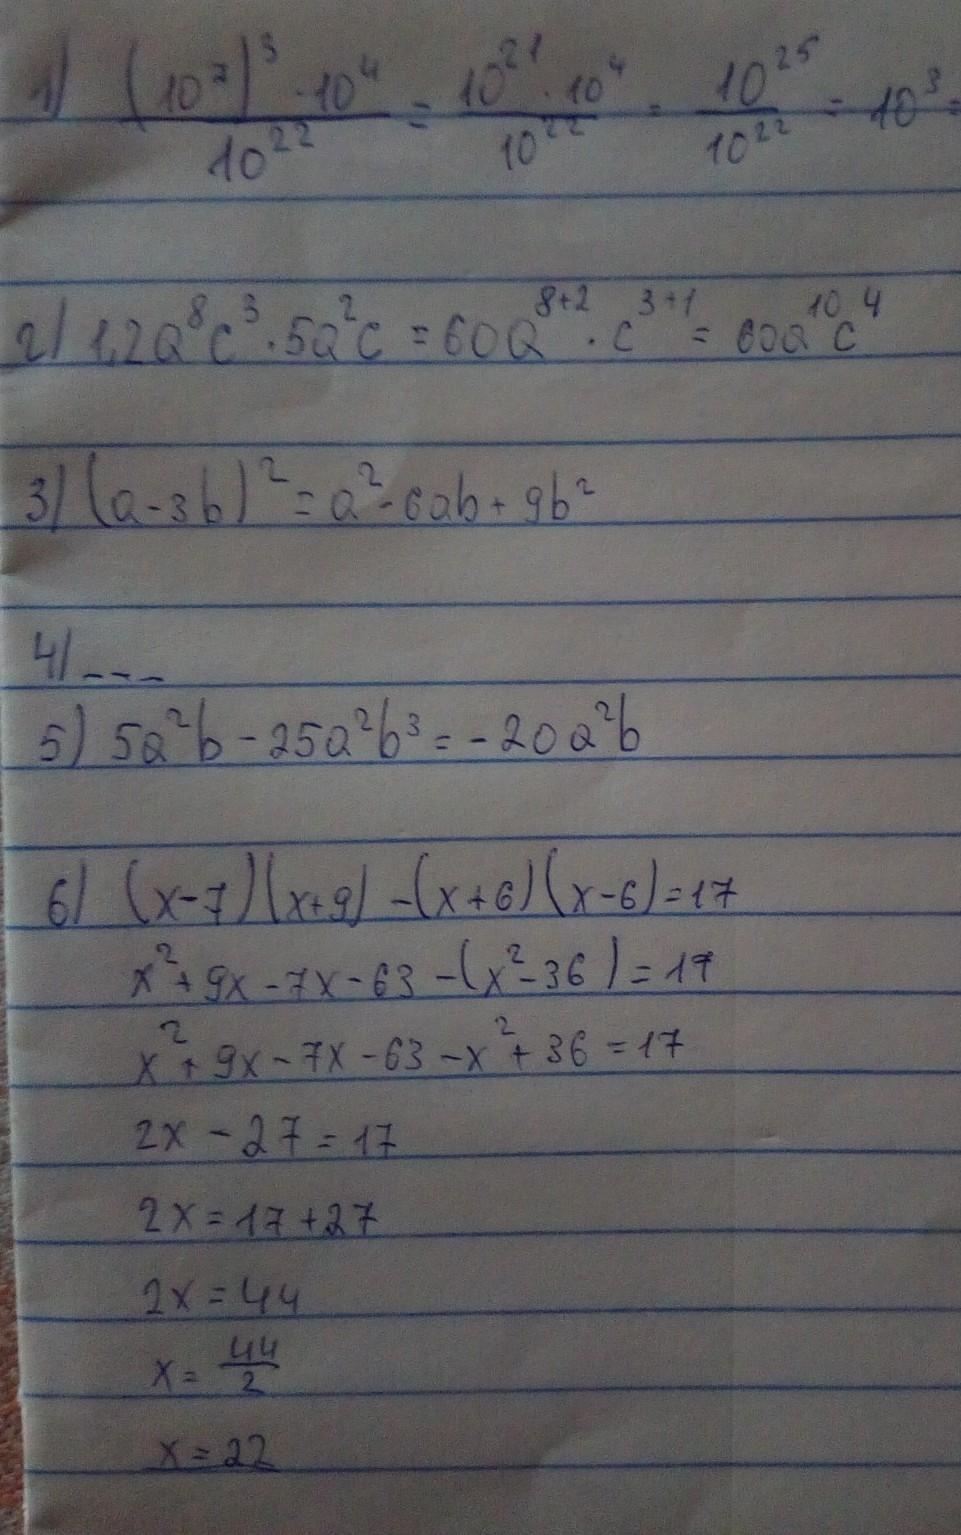 1) (10⁷)³ · 10⁴ / 10²² = 10²¹ · 10⁴ / 10²² = 10²⁵ / 10²² = 10³ =
2) 1,2a⁸c³ · 5a²c = 60a⁸⁺² · c³⁺¹ = 60a¹⁰c⁴
3) (a-3b)² = a² - 6ab + 9b²
4) ---
5) 5a²b - 25a²b³ = -20a²b
6) (x-7)(x+9) - (x+6)(x-6) = 17
x² + 9x - 7x - 63 - (x² - 36) = 17
x² + 9x - 7x - 63 - x² + 36 = 17
2x - 27 = 17
2x = 17 + 27
2x = 44
x = 44/2
x = 22